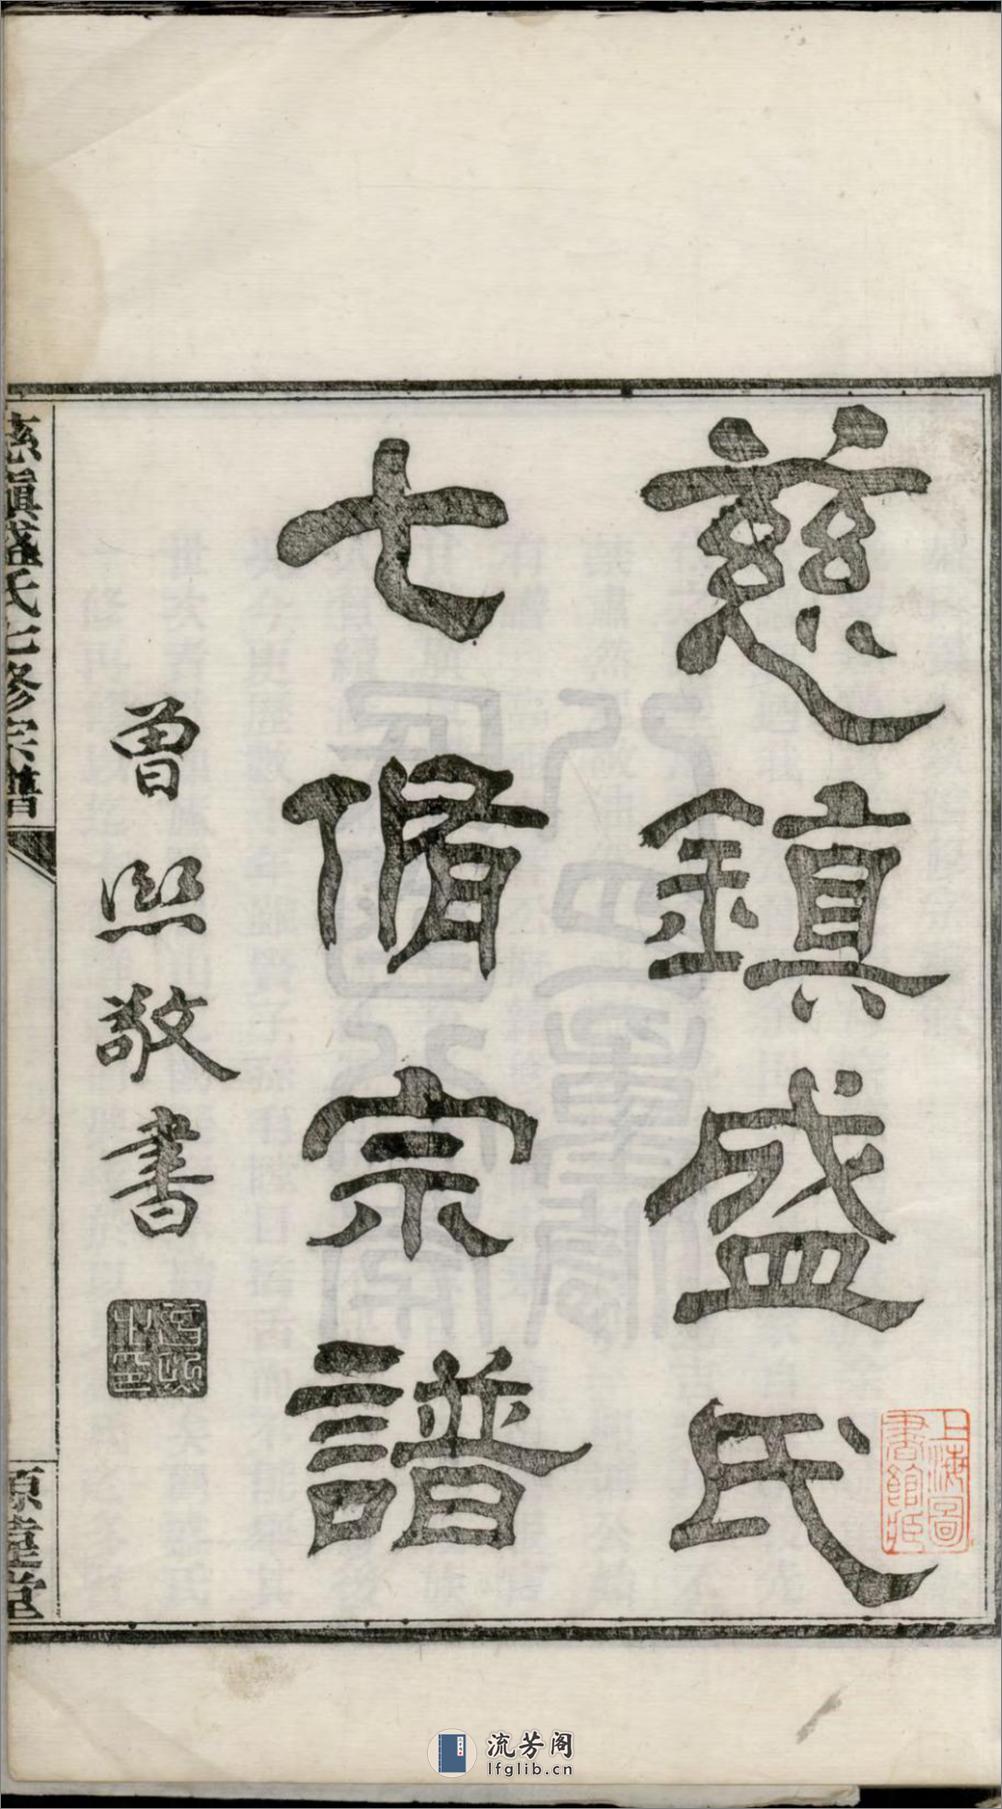 慈鎮盛氏
七脩宗譜
曾熙敬書
上海圖
書館藏
慈鎮盛氏七修宗譜
堂
流芳阁
lfglib.cn